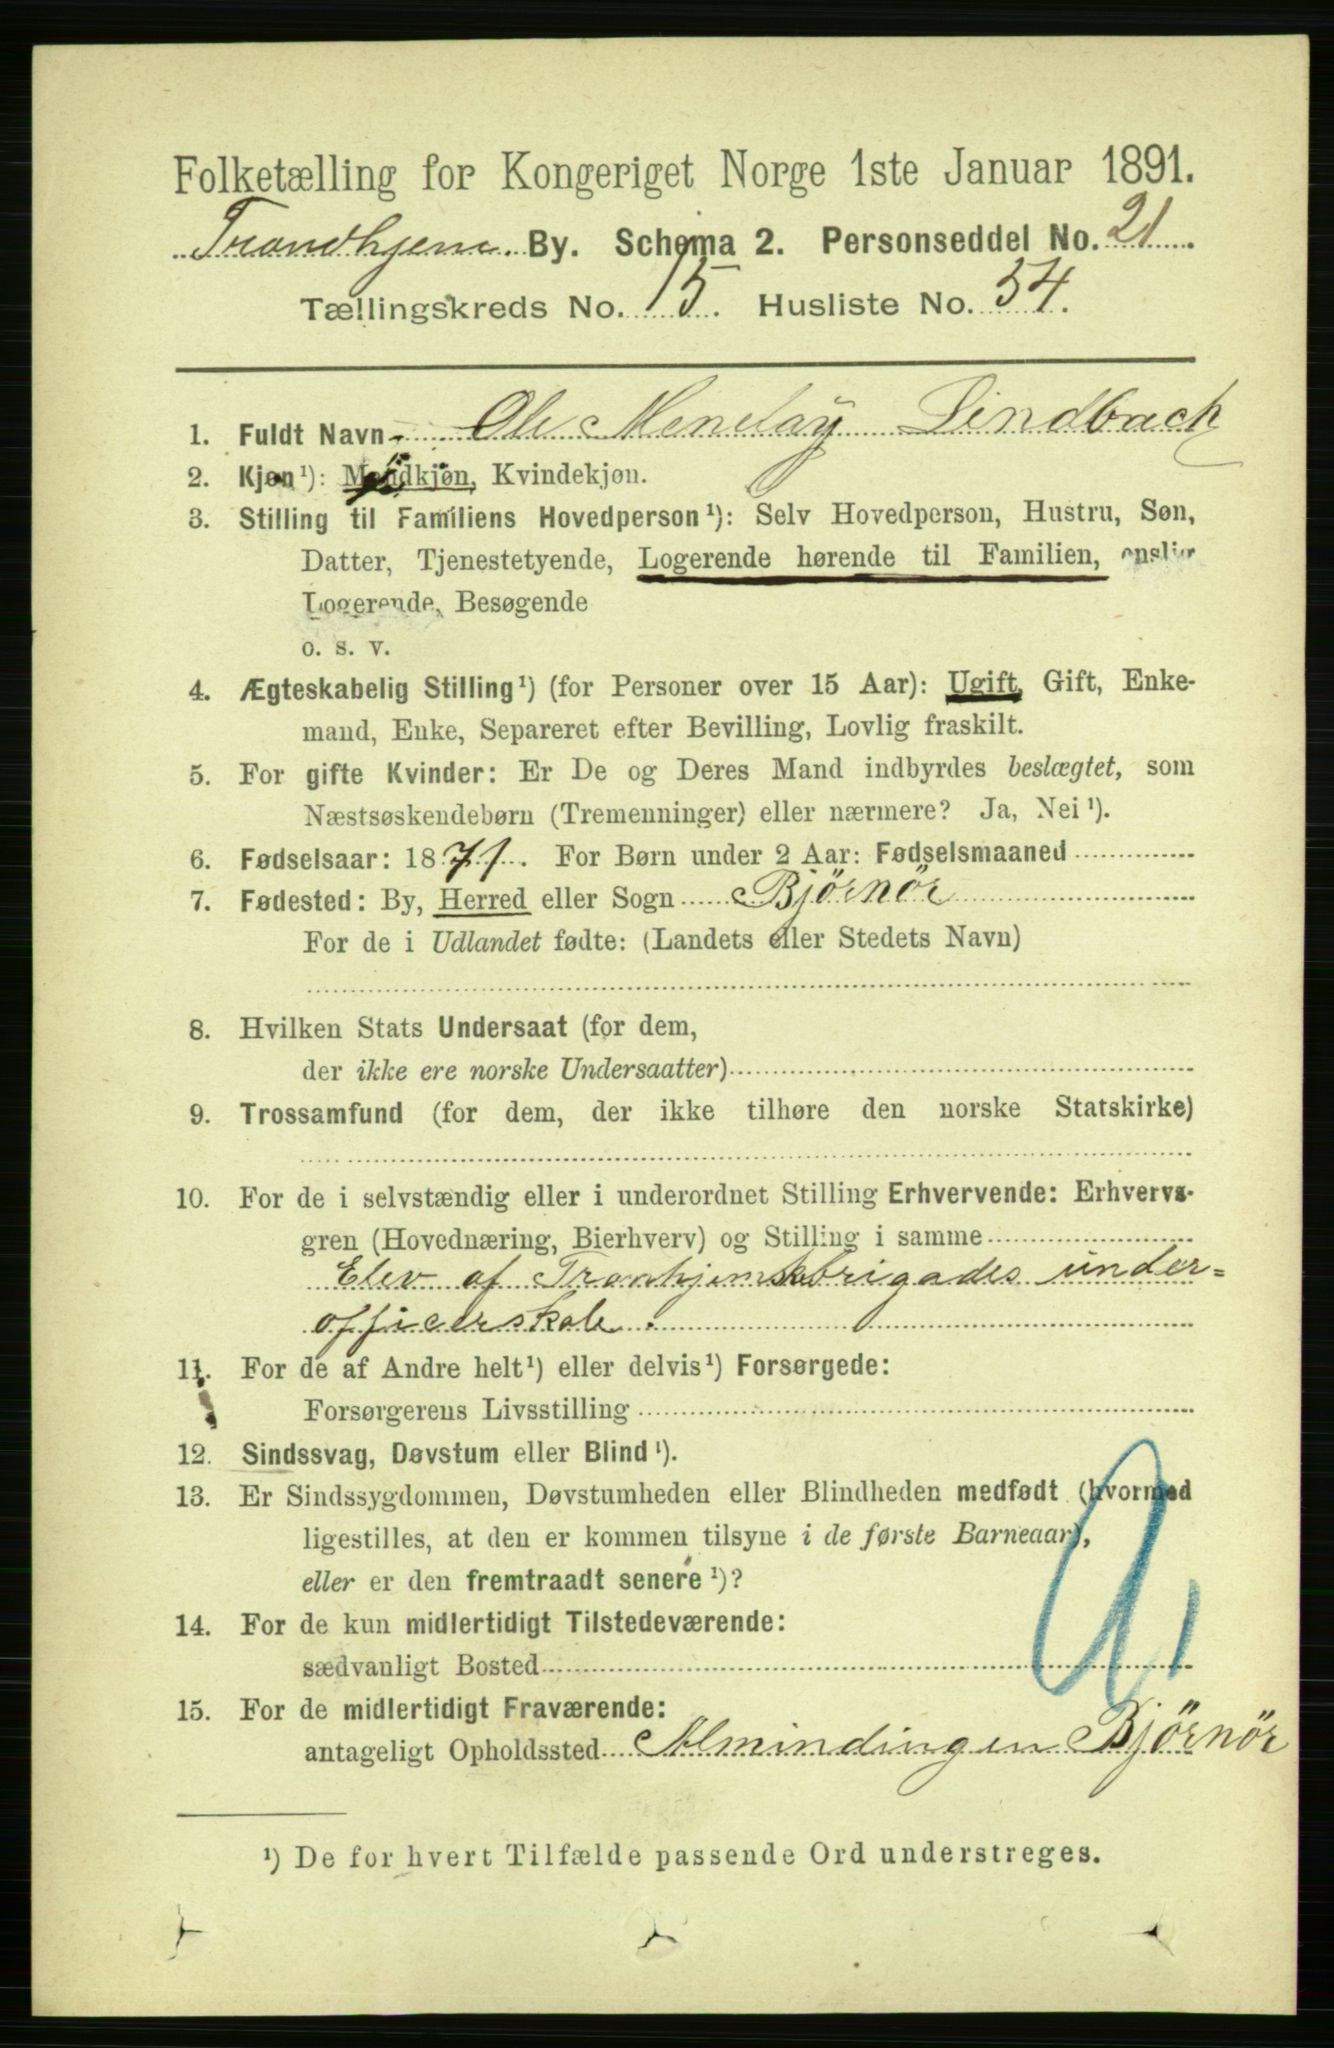 Folketælling for Kongeriget Norge 1ste Januar 1891.
Trondhjem By. Schema 2. Personseddel No. 21.
Tællingskreds No. 15. Husliste No. 54.
1. Fuldt Navn Ole Menelay Lindbach
2. Kjøn ¹): Mandkjøn, Kvindekjøn.
3. Stilling til Familiens Hovedperson ¹): Selv Hovedperson, Hustru, Søn,
Datter, Tjenestetyende, Logerende hørende til Familien, enslig
Logerende, Besøgende
o. s. v.
4. Ægteskabelig Stilling ¹) (for Personer over 15 Aar): Ugift, Gift, Enke-
mand, Enke, Separeret efter Bevilling, Lovlig fraskilt.
5. For gifte Kvinder: Er De og Deres Mand indbyrdes beslægtet, som
Næstsøskendebørn (Tremenninger) eller nærmere? Ja, Nei ¹).
6. Fødselsaar: 1871. For Børn under 2 Aar: Fødselsmaaned
7. Fødested: By, Herred eller Sogn Bjørnör
For de i Udlandet fødte: (Landets eller Stedets Navn)
8. Hvilken Stats Undersaat (for dem,
der ikke ere norske Undersaatter)
9. Trossamfund (for dem, der ikke tilhøre den norske Statskirke)
10. For de i selvstændig eller i underordnet Stilling Erhvervende: Erhvervs-
gren (Hovednæring, Bierhverv) og Stilling i samme
Elev af Tronhjemsbrigades under-
officerskole.
11. For de af Andre helt ¹) eller delvis ¹) Forsørgede:
Forsørgerens Livsstilling
12. Sindssvag, Døvstum eller Blind ¹).
13. Er Sindssygdommen, Døvstumheden eller Blindheden medfødt (hvormed
ligestilles, at den er kommen tilsyne i de første Barneaar),
eller er den fremtraadt senere ¹)?
14. For de kun midlertidigt Tilstedeværende:
sædvanligt Bosted
15. For de midlertidigt Fraværende:
antageligt Opholdssted Almindingen Björnör
¹) De for hvert Tilfælde passende Ord understreges.